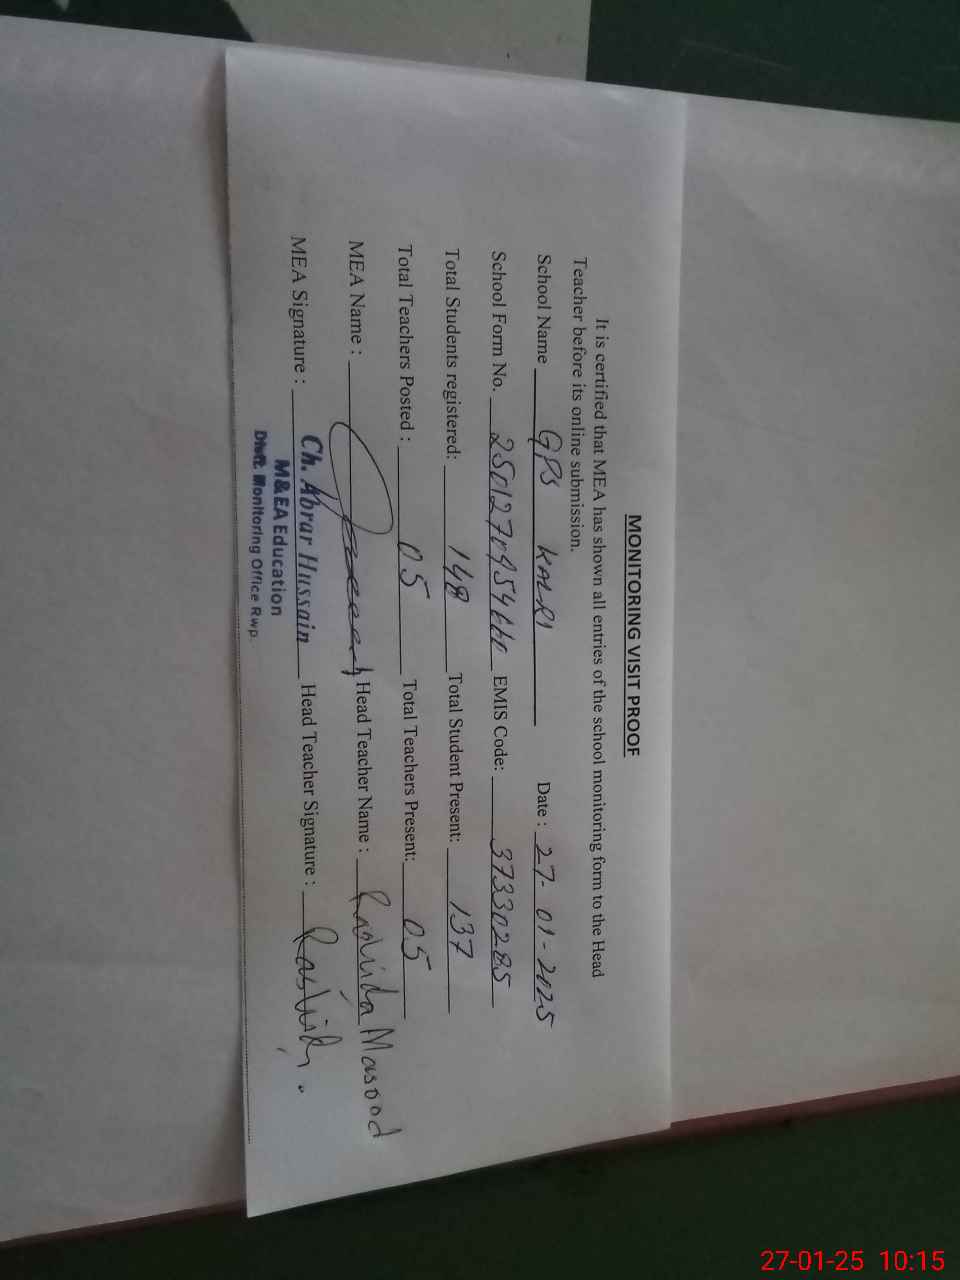 MONITORING VISIT PROOF
It is certified that MEA has shown all entries of the school monitoring form to the Head
Teacher before its online submission.
School Name GPS KALRI Date : 27-01-2025
School Form No. EMIS Code: 37330285
Total Students registered: 148 Total Student Present: 137
Total Teachers Posted : 05 Total Teachers Present: 05
MEA Name : Head Teacher Name : Rashida Masood
MEA Signature : Ch. Abrar Hussain Head Teacher Signature : Rashida.
M&EA Education
Distt. Monitoring Office Rwp.
27-01-25 10:15